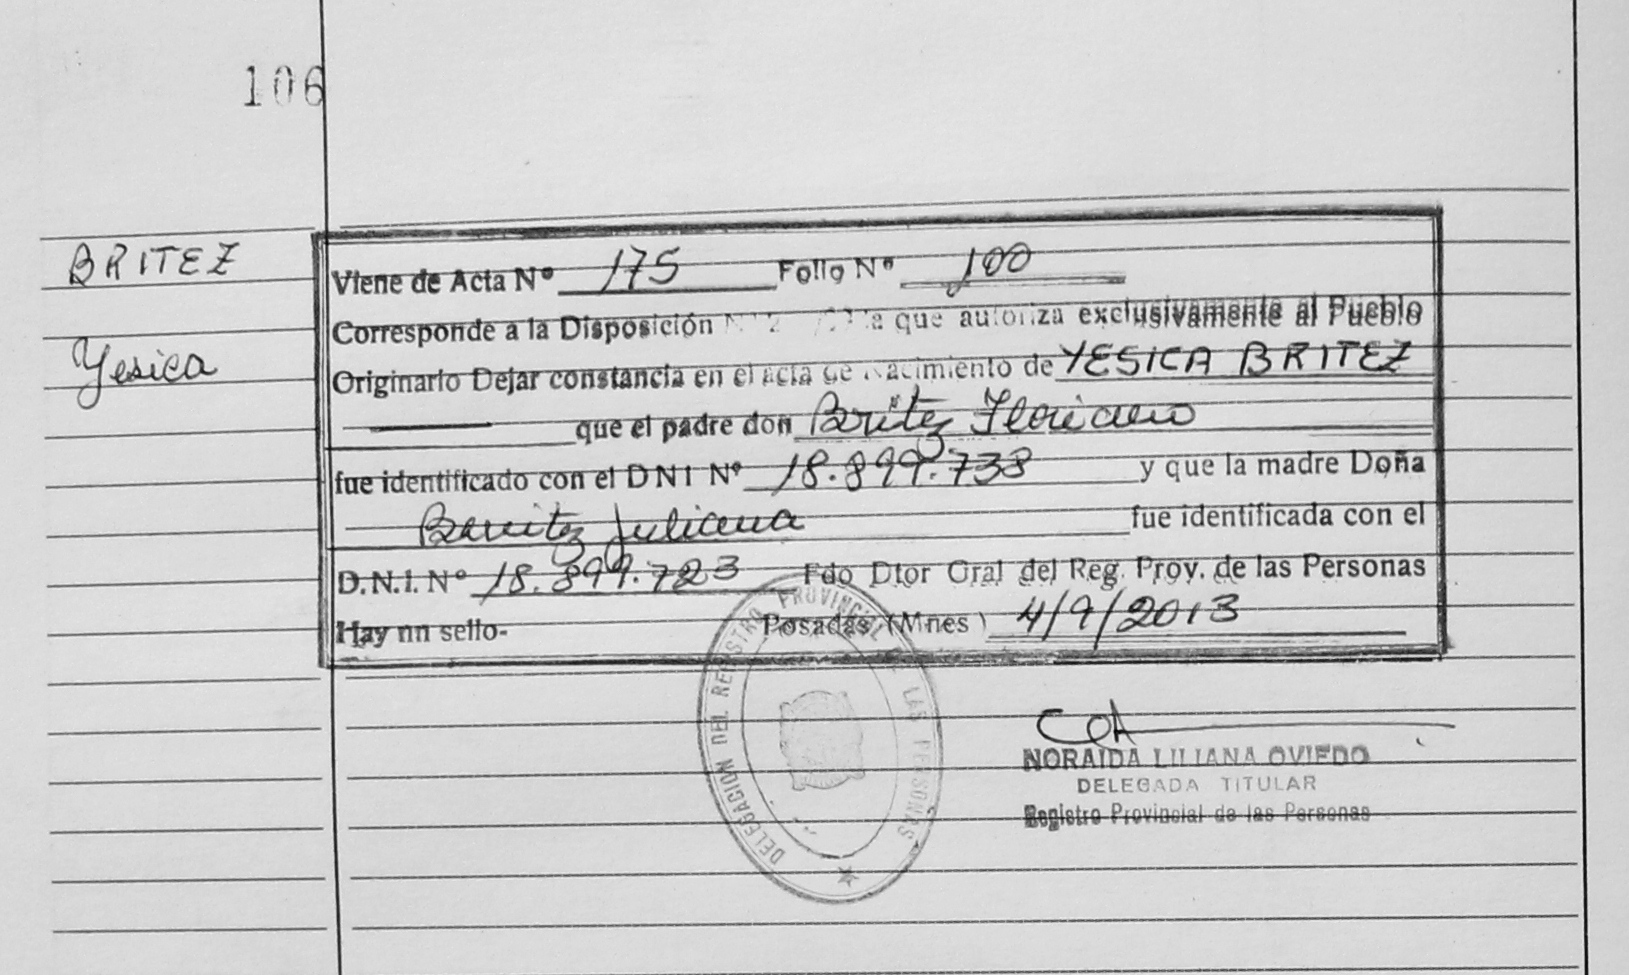 106
BRITEZ
Yesica
Viene de Acta Nº 175 Folio Nº 100
Corresponde a la Disposición que autoriza exclusivamente al Pueblo
Originario Dejar constancia en el acta de Nacimiento de YESICA BRITEZ
que el padre don Britez Floriano
fue identificado con el DNI Nº 18.899.738 y que la madre Doña
Benitez Juliana fue identificada con el
D.N.I. Nº 18.899.723 Fdo Dtor Gral del Reg. Prov. de las Personas
Hay un sello- Posadas (Mnes) 4/9/2013
DELEGACION DEL REGISTRO PROVINCIAL DE LAS PERSONAS
NORAIDA LILIANA OVIEDO
DELEGADA TITULAR
Registro Provincial de las Personas